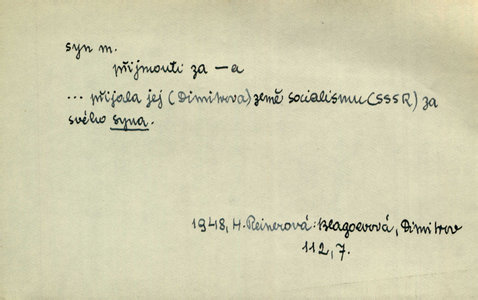 syn m.
přijmouti za —a
... přijala jej (Dimitrova) země socialismu (SSSR) za
svého syna.
1948, H. Reinerová: Blagoevová, Dimitrov
112, 7.